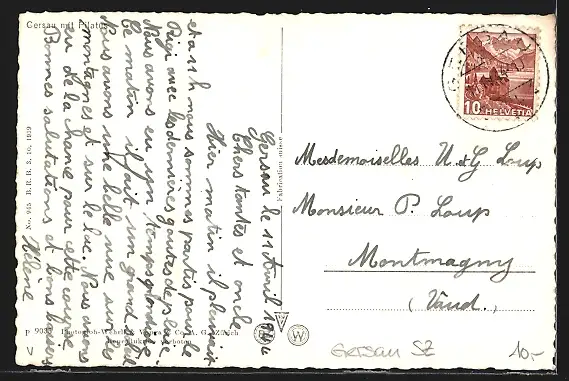 Gersau mit Pilatus
Gersau le 11 Avril 1944
Chers tantes et oncle,
Hier matin il pleuvait
et à 11 h nous sommes partis pour le
Rigi avec les dernières gouttes de pluie.
Nous avons eu un temps splendide
Ce matin il fait un grand soleil
Nous avons une belle vue sur les
montagnes et sur le lac. Nous avons
eu de la chance pour cette course
Bonnes salutations et bons baisers
Hélène
10 HELVETIA
Mesdemoiselles U & G Loup
Monsieur P. Loup
Montmagny
(Vaud.)
Fabrication suisse
W
Gersau SZ
10.-
V